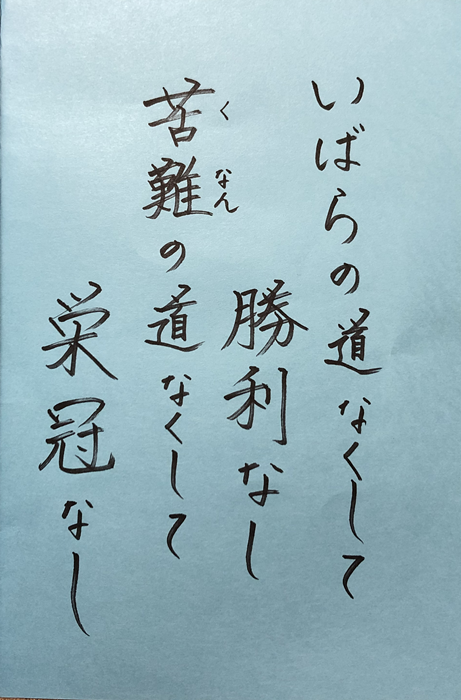 いばらの道なくして
勝利なし
苦難の道なくして
くなん
栄冠なし